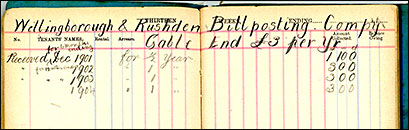 Wellingborough & Rushden Billposting Compy
THIRTEEN WEEKS ENDING
Gable End £3 per Yr
No. TENANTS NAMES Rental. Arrears. Amount Collected. Balance Owing
Received Dec 1901 for ½ Year 1 10 0
" " 1902 " 1 " 3 0 0
" " 1903 " 1 " 3 0 0
" " 1904 " 1 " 3 0 0